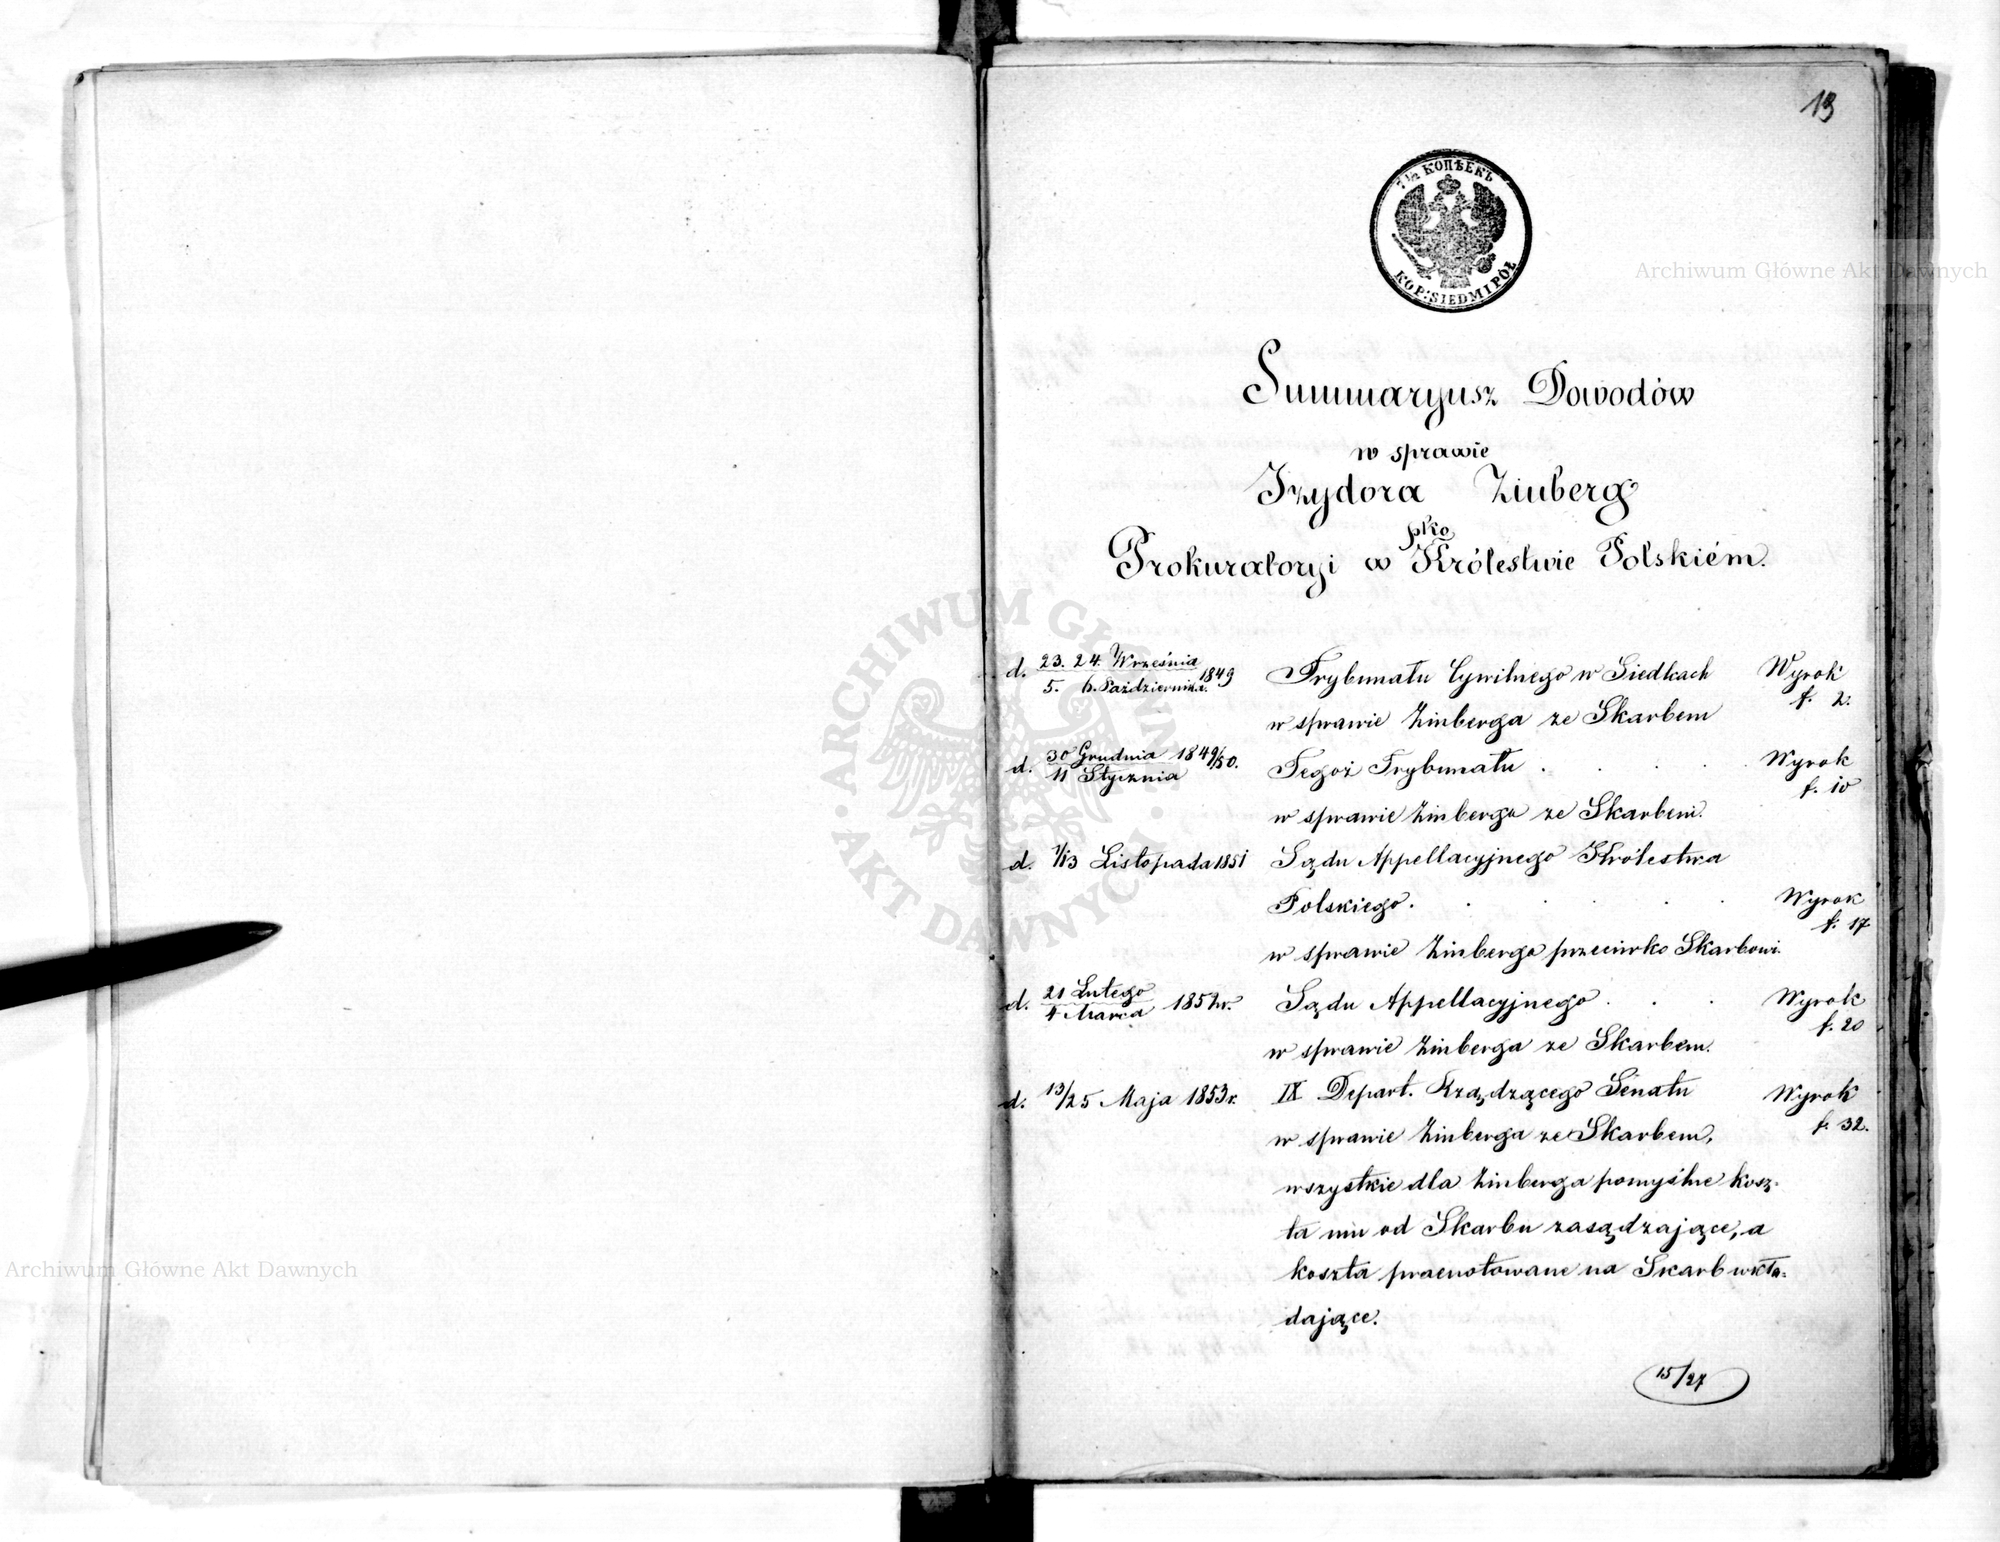 13
7 1/2 КОПѢЕКЪ
KOP: SIEDM I PÓŁ
Summaryusz Dowodów
w sprawie
Izydora Zinberg
pko
Prokuratoryi w Królestwie Polskiém.
d. 23. 24. Września 1849 Trybunału Cywilnego w Siedlcach Wyrok
5. 6. Października. f. 2.
w sprawie Zinberga ze Skarbem
d. 30 Grudnia 1849/50. Tegoż Trybunału . . . . Wyrok
11 Stycznia f. 10
w sprawie Zinberga ze Skarbem.
d. 1/13 Listopada 1851 Sądu Appellacyjnego Królestwa
Polskiego . . . . . Wyrok
f. 17
w sprawie Zinberga przeciwko Skarbowi.
d. 21 Lutego 1852r. Sądu Appellacyjnego . . . Wyrok
4 Marca f. 20
w sprawie Zinberga ze Skarbem.
d. 13/25 Maja 1853r. IX Depart. Rządzącego Senatu Wyrok
f. 32.
w sprawie Zinberga ze Skarbem,
wszystkie dla Zinberga pomyślne kosz-
ta mu od Skarbu zasądzające, a
koszta praenotowane na Skarb wkła-
dające.
15/27
Archiwum Główne Akt Dawnych
ARCHIWUM GŁÓWNE AKT DAWNYCH
Archiwum Główne Akt Dawnych